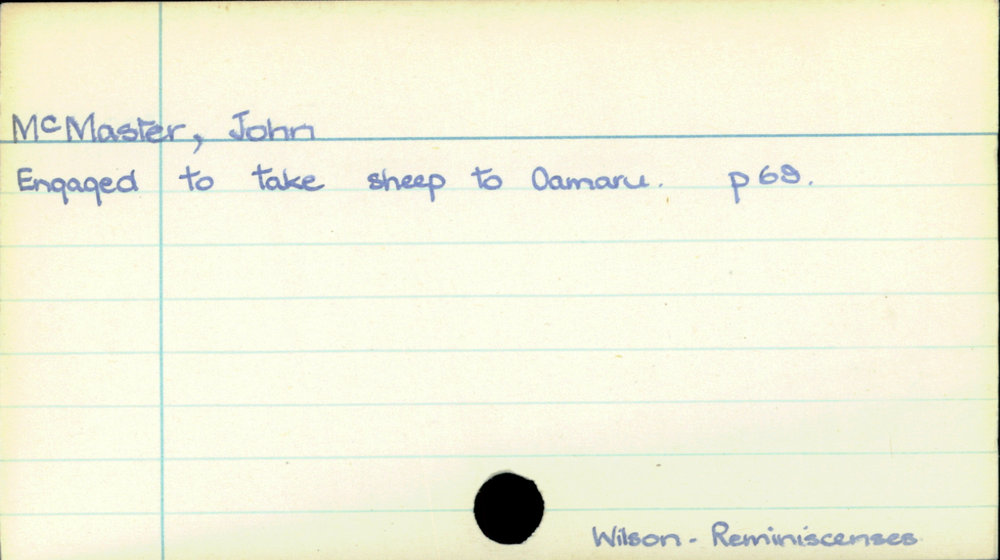 McMaster, John
Engaged to take sheep to Oamaru. p 69.
Wilson - Reminiscenses